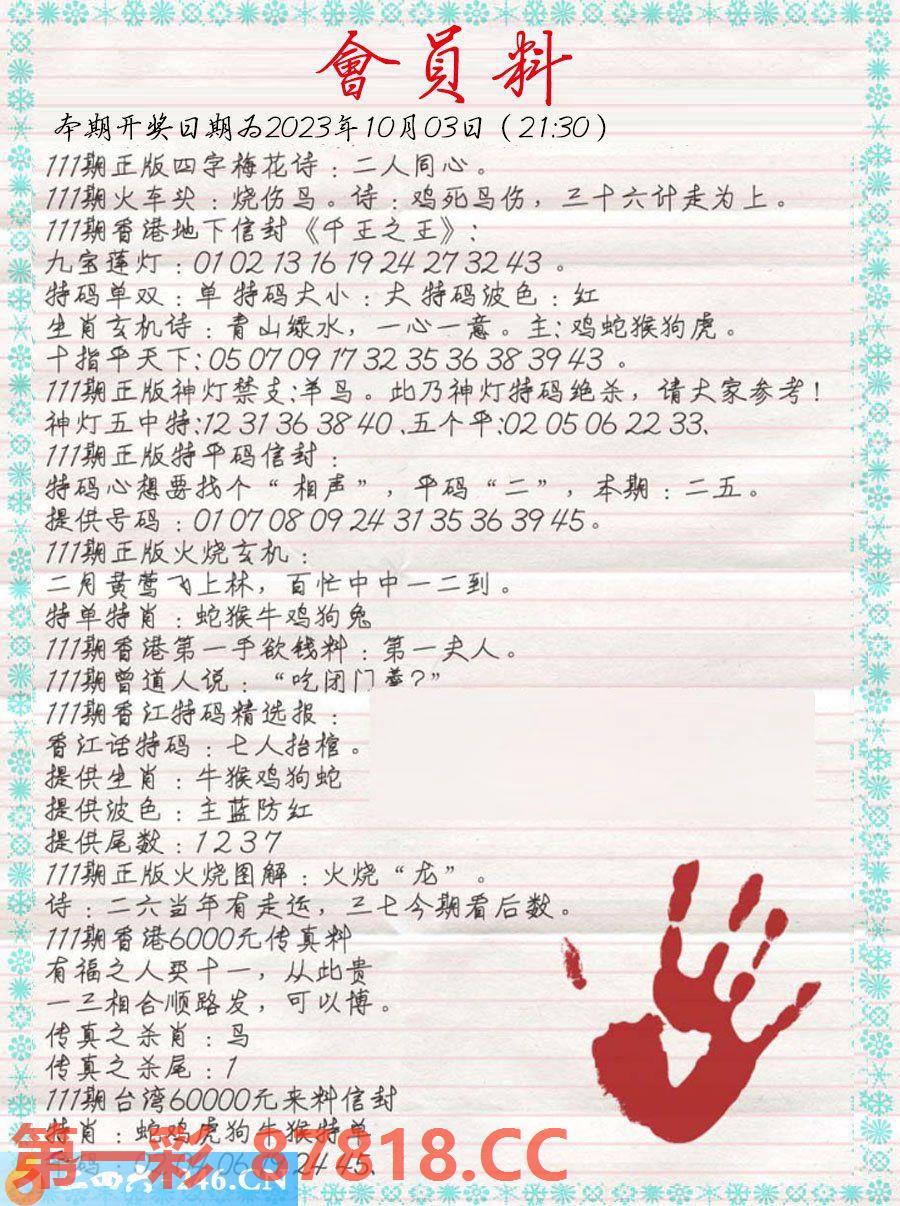 會員料
本期开奖日期为2023年10月03日（21:30）
111期正版四字梅花诗：二人同心。
111期火车头：烧伤鸟。诗：鸡死马伤，三十六计走为上。
111期香港地下信封《千王之王》：
九宝莲灯：01 02 13 16 19 24 27 32 43 。
特码单双：单 特码大小：大 特码波色：红
生肖玄机诗：青山绿水，一心一意。主：鸡蛇猴狗虎。
十指平天下：05 07 09 17 32 35 36 38 39 43 。
111期正版神灯禁支：羊马。此乃神灯特码绝杀，请大家参考！
神灯五中特：12 31 36 38 40 、五个平：02 05 06 22 33、
111期正版特平码信封：
特码心想要找个“相声”，平码“二”，本期：二五。
提供号码：01 07 08 09 24 31 35 36 39 45。
111期正版火烧玄机：
二月黄莺飞上林，百忙中中一二到。
特单特肖：蛇猴牛鸡狗兔
111期香港第一手欲钱料：第一夫人。
111期曾道人说：“吃闭门羹？”
111期香江特码精选报：
香江话特码：七人抬棺。
提供生肖：牛猴鸡狗蛇
提供波色：主蓝防红
提供尾数：1 2 3 7
111期正版火烧图解：火烧“龙”。
诗：二六当年有走运，三七今期看后数。
111期香港6000元传真料
有福之人买十一，从此贵
一三相合顺路发，可以博。
传真之杀肖：马
传真之杀尾：1
111期台湾60000元来料信封
特肖：蛇鸡虎狗牛猴特单
第一彩 87818.CC
24 45、
二四六 246.CN